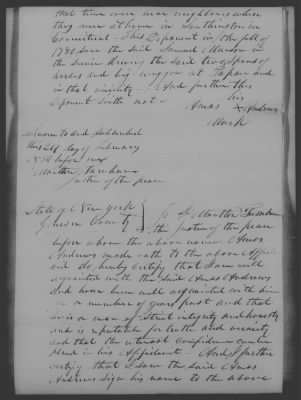 that time were near neighbours when
they were at home in Southington in
Connecticut - This Deponent in the fall of
1780 saw the said Samuel Munson in
the service driving the said two spans of
horses and big waggon at Tapan and
in that vicinity - And further this
Deponent saith not -
his
Amos X Andrews
Mark
Sworn to and Subscribed
this 24 day of February
before me
Moulton Farnham
Justice of the peace
State of New York
Genesee County
I Moulton Farnham
the Justice of the peace
before whom the above named Amos
Andrews made oath to the above Affid
avit do hereby certify that I am well
acquainted with the said Amos Andrews
and have been well acquainted with him
for a number of years past and that
he is a man of strict integrity and honesty
and is reputable for truth and veracity
and that the utmost confidence can be
placed in his Affidavit - And I further
certify that I saw the said Amos
Andrews sign his name to the above